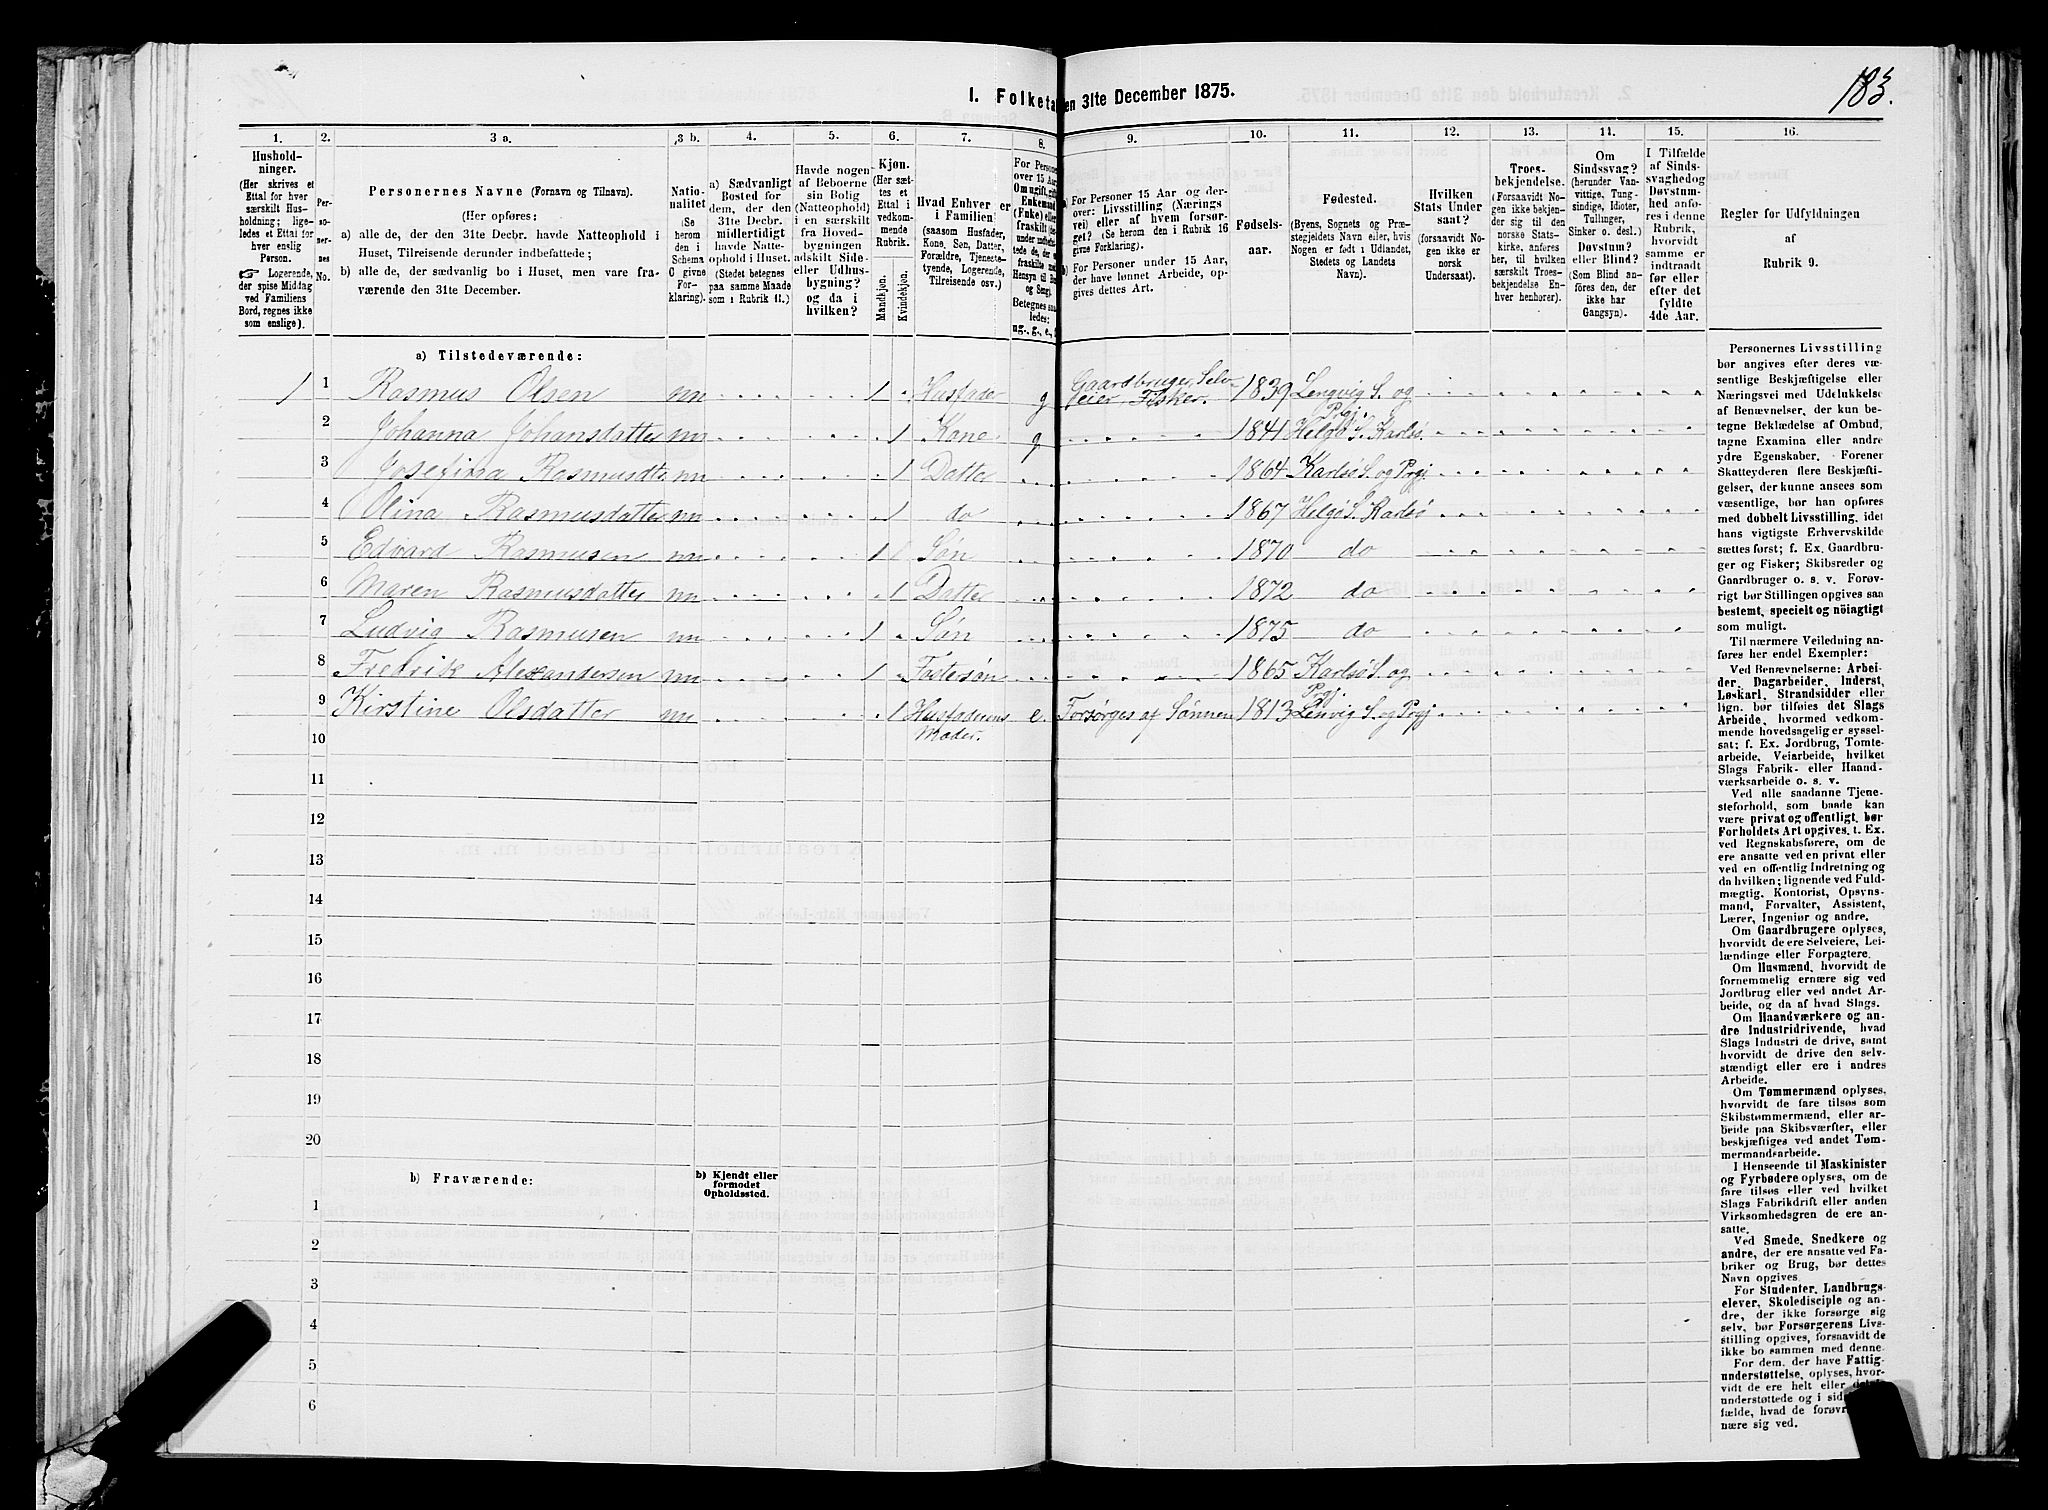 183.
I. Folketa en 31te December 1875.
1. 2. 3 a. 3 b. 4. 5. 6. 7. 8. 9. 10. 11. 12. 13. 14. 15. 16.
Hushold-
ninger.
(Her skrives et
Ettal for hver
særskilt Hus-
holdning; lige-
ledes et Ettal for
hver enslig
Person.
☞ Logerende,
der spise Middag
ved Familiens
Bord, regnes ikke
som enslige).
Per-
so-
ner-
nes
No.
Personernes Navne (Fornavn og Tilnavn).
(Her opføres:
a) alle de, der den 31te Decbr. havde Natteophold i
Huset, Tilreisende derunder indbefattede;
b) alle de, der sædvanlig bo i Huset, men vare fra-
værende den 31te December.
Natio-
nalitet
(Se
herom
den i
Schema
C givne
For-
klaring).
a) Sædvanligt
Bosted for
dem, der den
31te Decbr.
midlertidigt
havde Natte-
ophold i Huset.
(Stedet betegnes
paa samme Maade
som i Rubrik 11.)
Havde nogen
af Beboerne
sin Bolig
(Natteophold)
i en særskilt
fra Hoved-
bygningen
adskilt Side-
eller Udhus-
bygning?
og da i
hvilken?
Kjøn.
(Her sæt-
tes et
Ettal i
vedkom-
mende
Rubrik.
Mandkjøn.
Kvindekjøn.
Hvad Enhver er
i Familien
(saasom Husfader,
Kone, Søn, Datter,
Forældre, Tjeneste-
tyende, Logerende,
Tilreisende osv.)
For Persone
over 15 Aar
Om ugift, gift
Enkemand
(Enke) eller
fraskilt
Betegnes saa-
ledes:
ug., g., e.,
a) For Personer 15 Aar og der-
over: Livsstilling (Nærings
vei) eller af hvem forsør-
get? (Se herom den i Rubrik 16
givne Forklaring).
b) For Personer under 15 Aar,
der have lønnet Arbeide, op-
gives dettes Art.
Fødsels-
aar.
Fødested.
(Byens, Sognets og Præ-
stegjeldets Navn eller, hvis
Nogen er født i Udlandet,
Stedets og Landets
Navn).
Hvilken
Stats Under
saat?
(forsaavidt No-
gen ikke er
norsk
Undersaat).
Troes-
bekjendelse.
(Forsaavidt No-
gen ikke bekjen-
der sig til den
norske Stats-
kirke, anføres
her, til hvilken
særskilt Troes-
bekjendelse En-
hver henhører).
Om
Sindssvag?
(herunder Van-
vittige, Tung-
sindige, Idioter,
Tullinger,
Sinker o. desl.)
Døvstum?
eller Blind?
(Som Blind an-
føres den, der
ikke har
Gangsyn).
I Tilfælde
af Sinds-
svaghed og
Døvstum-
hed anfø-
res i denne
Rubrik,
hvorvidt
samme er
indtraadt
før eller
efter det
fyldte
4de Aar.
Regler for Udfyldningen
af
Rubrik 9.
a) Tilstedeværende:
1 1 Rasmus Olsen nn 1 Husfader g Gaardbruger, Selv-
eier, Fisker. 1839 Lengvig S. og
Prgj.
2 Johanna Johansdatter nn 1 Kone g 1841 Helgö S. Karlsö.
3 Josefina Rasmusdt. nn 1 Datter 1864 Karlsö S. og Prgj.
4 Olina Rasmusdatter nn 1 do 1867 Helgö S. Karlsö
5 Edvard Rasmusen nn 1 Søn 1870 do
6 Maren Rasmusdatter nn 1 Datter 1872 do
7 Ludvig Rasmusen nn 1 Søn 1875 do
8 Fredrik Alexandersen nn 1 Fostersøn 1865 Karlsö S. og
Prgj.
9 Kirstine Olsdatter nn 1 Husfaderens e. Forsørges af Sønnen 1813 Lenvig S. og Prgj
Moder.
10
11
12
13
14
15
16
17
18
19
20
b) Fraværende:
b) Kjendt eller
formodet
Opholdssted.
1
2
3
4
5
6
Personernes Livsstilling
bør angives efter deres væ-
sentlige Beskjæftigelse eller
Næringsvei med Udelukkelse
af Benævnelser, der kun be-
tegne Beklædelse af Ombud,
tagne Examina eller andre
ydre Egenskaber. Forener
Skatteyderen flere Beskjæfti-
gelser, der kunne ansees som
væsentlige, bør han opføres
med dobbelt Livsstilling, idet
hans vigtigste Erhvervskilde
sættes først; f. Ex. Gaardbru-
ger og Fisker; Skibsreder og
Gaardbruger o. s. v. Forøv-
rigt bør Stillingen opgives saa
bestemt, specielt og nöiagtigt
som muligt.
Til nærmere Veiledning an-
føres her endel Exempler:
Ved Benævnelserne: Arbei-
der, Dagarbeider, Inderst,
Løskarl, Strandsidder eller
lign. bør tilføies det Slags
Arbeide, hvormed vedkom-
mende hovedsagelig er syssel-
sat; f. Ex. Jordbrug, Tomte-
arbeide, Veiarbeide, hvilket
Slags Fabrik- eller Haand-
værksarbeide o. s. v.
Ved alle saadanne Tjene-
steforhold, som baade kan
være privat og offentligt, bør
Forholdets Art opgives, t. Ex.
ved Regnskabsførere, om de
ere ansatte ved en privat eller
ved en offentlig Indretning og
da hvilken; lignende ved Fuld-
mægtig, Kontorist, Opsyns-
mand, Forvalter, Assistent,
Lærer, Ingeniør og andre.
Om Gaardbrugere oplyses,
hvorvidt de ere Selveiere, Lei-
lændinge eller Forpagtere.
Om Husmænd, hvorvidt de
fornemmelig ernære sig ved
Jordbrug eller ved andet Ar-
beide, og da af hvad Slags.
Om Haandværkere og an-
dre Industridrivende, hvad
Slags Industri de drive, samt
hvorvidt de drive den selv-
stændigt eller ere i andres
Arbeide.
Om Tømmermænd oplyses,
hvorvidt de fare tilsøs som
Skibstømmermænd, eller ar-
beide paa Skibsværfter, eller
beskjæftiges ved andet Tøm-
mermandsarbeide.
I Henseende til Maskinister
og Fyrbødere oplyses, om de
fare tilsøs eller ved hvilket
Slags Fabrikdrift eller anden
Virksomhedsgren de ere an-
satte.
Ved Smede, Snedkere og
andre, der ere ansatte ved Fa-
briker og Brug, bør dettes
Navn opgives.
For Studenter, Landbrugs-
elever, Skoledisciple og an-
dre, der ikke forsørge sig
selv, bør Forsørgerens Livs-
stilling opgives, forsaavidt de
ikke bo sammen med denne.
For dem, der have Fattig-
understøttelse, oplyses, hvor-
vidt de ere helt eller
understøttede og i sid
fælde, hvad de forøv
nære sig ved.